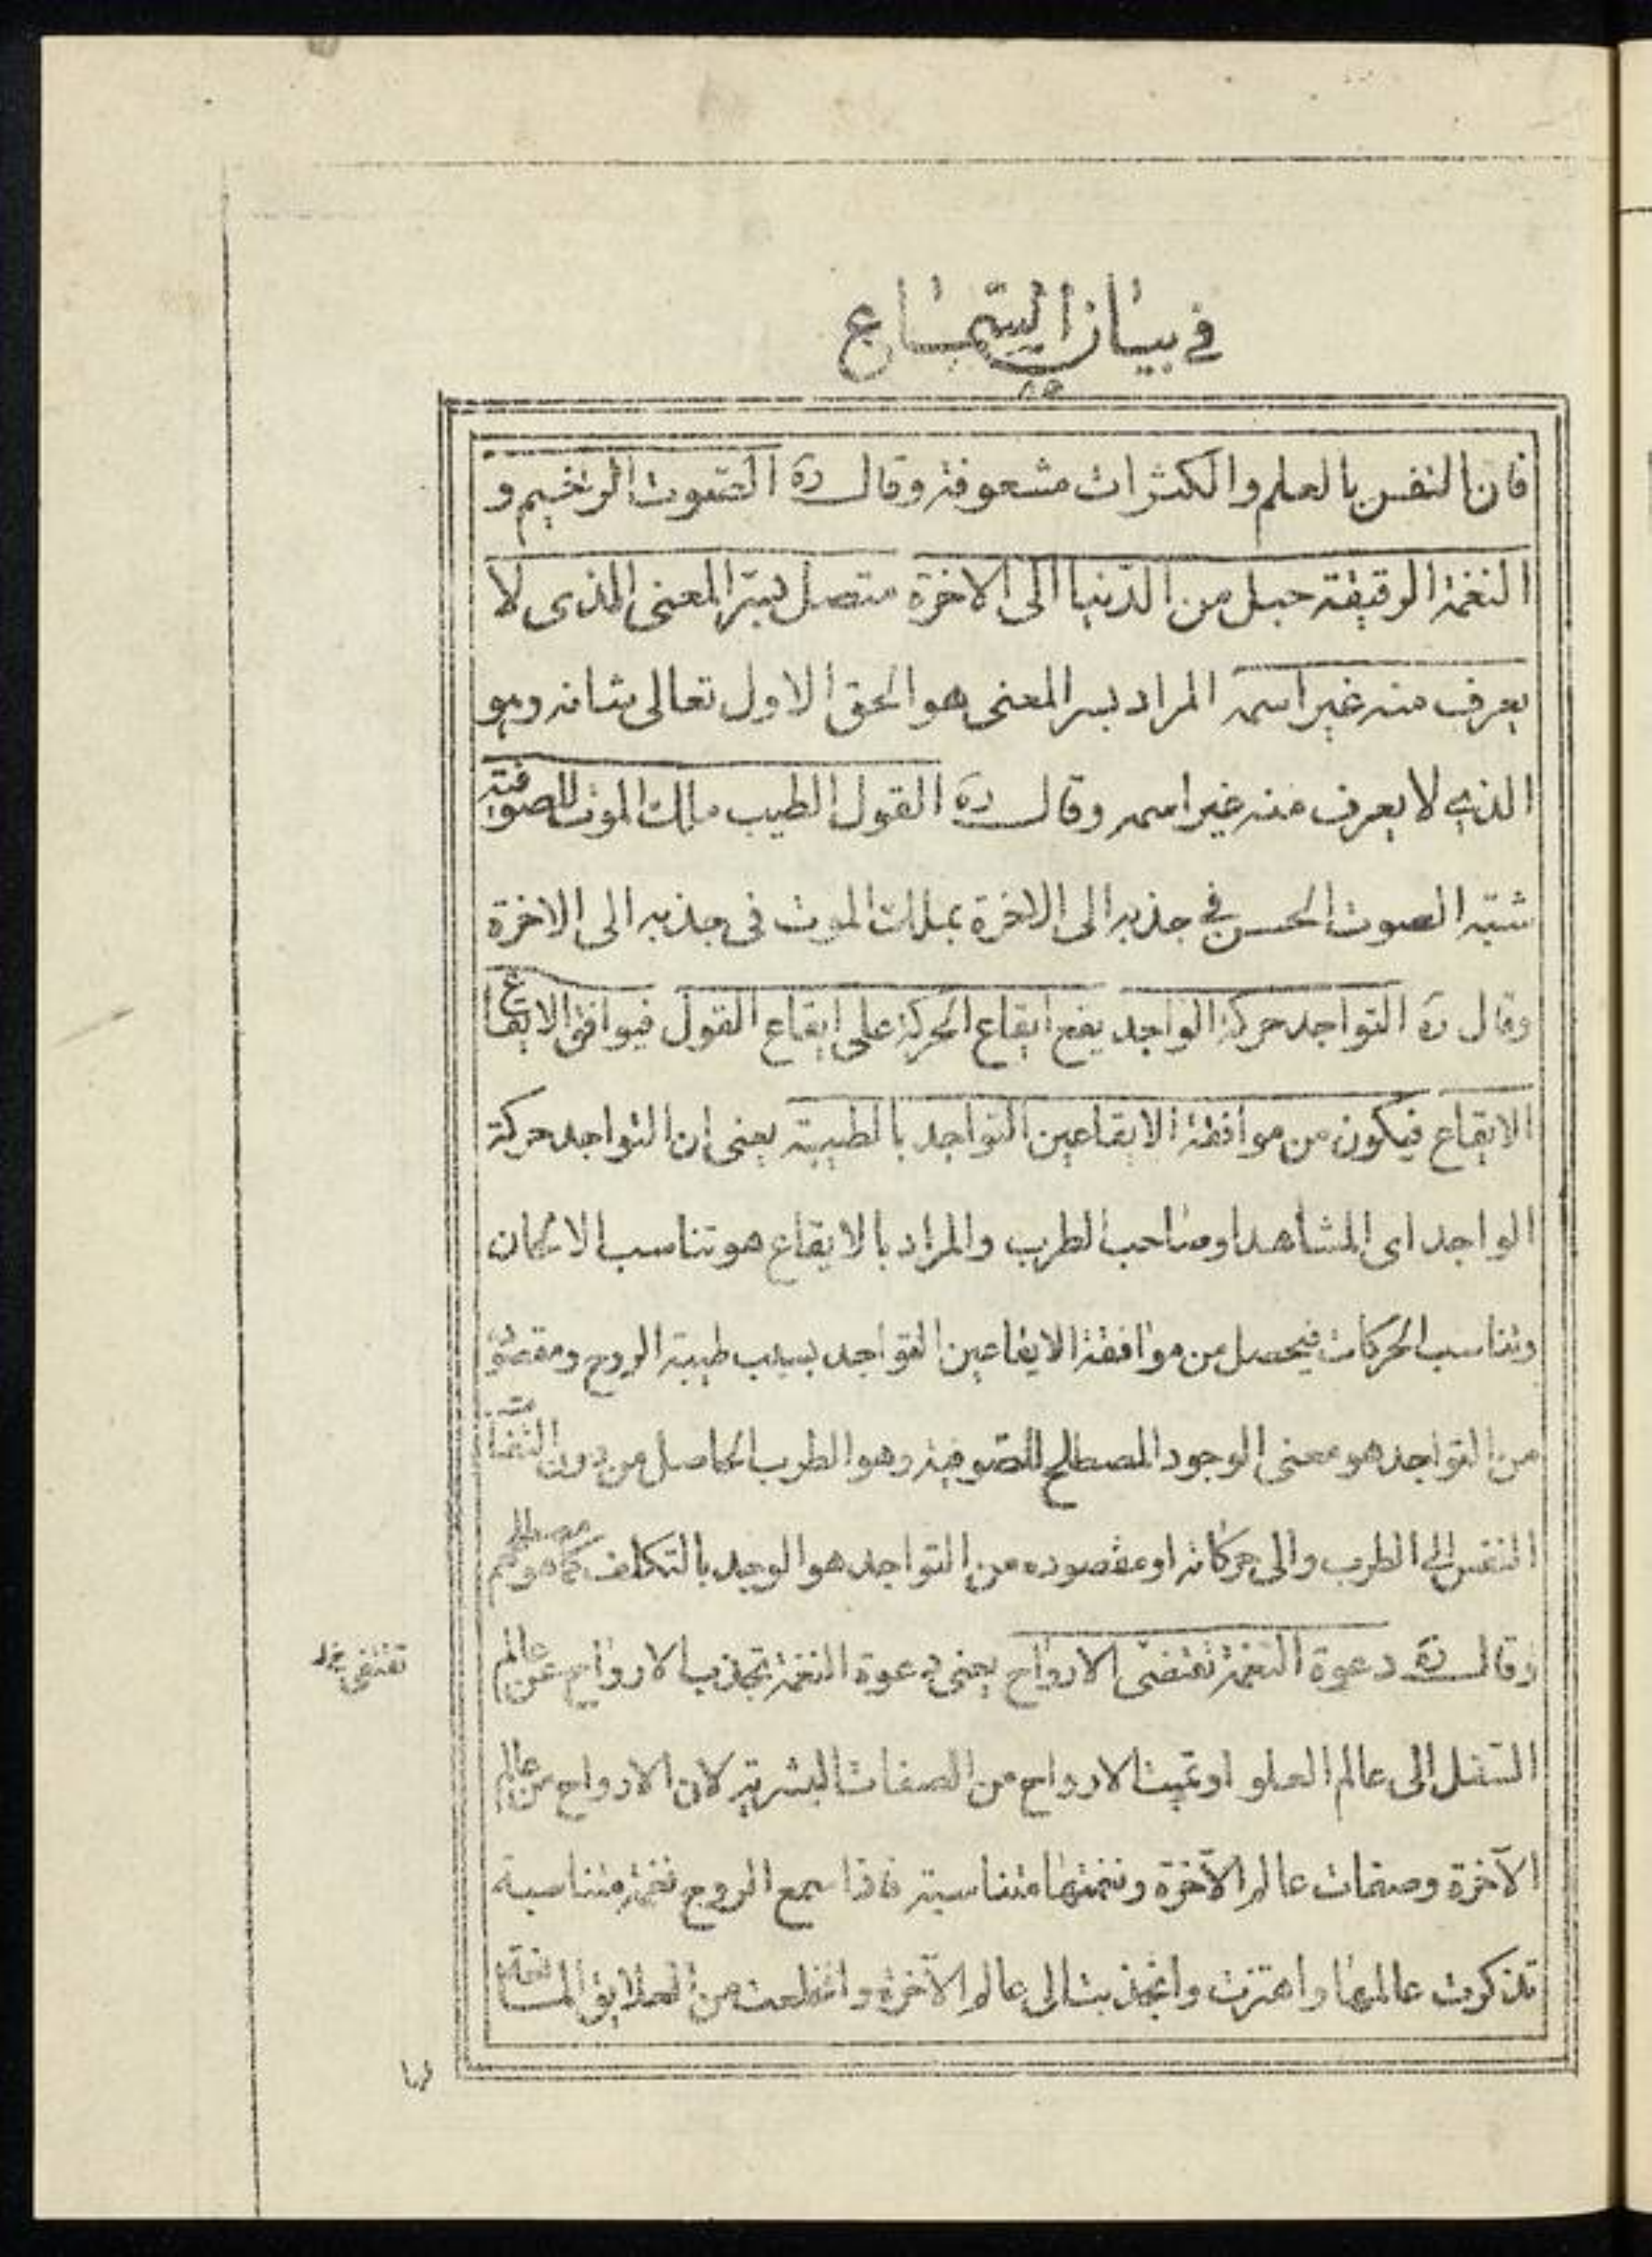 في بيان السّماع
فان النفس بالعلم والكثرات مشعوفة وقال رہ الصوت الرخيم و
النغمة الرقيقة حبل من الدّنيا الى الاخرة متصل بسّر المعنى الذى لا
يعرف منه غير اسمه المراد بسر المعنى هو الحق الاول تعالى شانه وهو
الذي لا يعرف منه غير اسمه وقال رہ القول الطيب ملك الموت للصوفية
شبّه الصوت الحسن في جذبه الى الاخرة بملك الموت فى جذبه الى الاخرة
وقال رہ التواجد حركة الواجد يقع ايقاع الحركة على ايقاع القول فيوافق الايقاع
الايقاع فيكون من موافقة الايقاعين التواجد بالطيبة يعنى ان التواجد حركة
الواجد اى المشاهد او صاحب الطرب والمراد بالايقاع هو تناسب الالحان
وتناسب الحركات فيحصل من موافقة الايقاعين التواجد بسبب طيبة الروح ومقصوده
من التواجد هو معنى الوجود المصطلح للصّوفية وهو الطرب الحاصل من دون التفات
النفس الى الطرب والى حركاته او مقصوده من التواجد هو الوجد بالتكلف كما هو مصطلحهم
وقال رہ دعوة النغمة تقتضى الارواح يعنى دعوة النغمة تجذب الارواح عن عالم
تقتضى
السّفل الى عالم العلو او تميت الارواح من الصفات البشرية لان الارواح من عالم
الآخرة وصفات عالم الآخرة ونغمتها متناسبة فاذا سمع الروح نغمة متناسبة
تذكرت عالمها واهتزت وانجذبت الى عالم الآخرة وانخلعت من العلايق المانعة